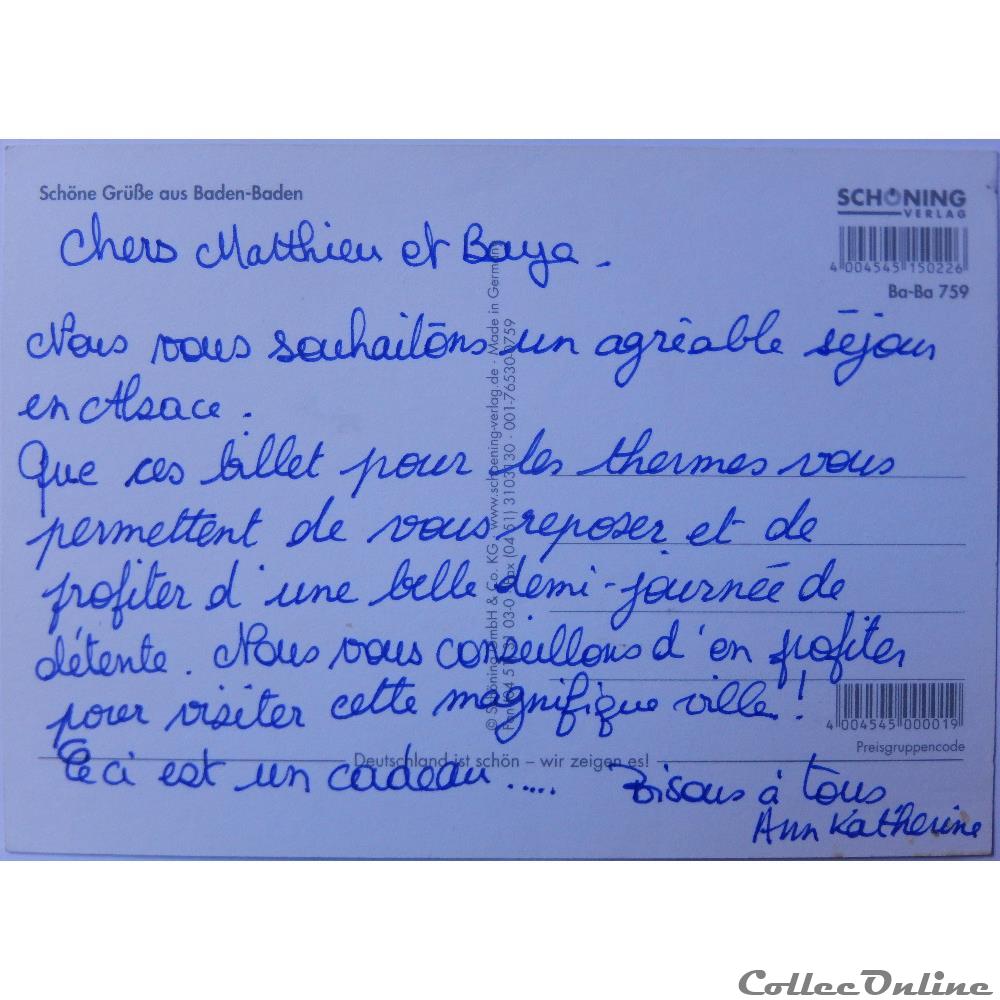 Schöne Grüße aus Baden-Baden
SCHÖNING
VERLAG
4 004545 150226
Ba-Ba 759
Chers Matthieu et Baya.
Nous vous souhaitons un agréable séjour
en Alsace.
Que ces billet pour les thermes vous
permettent de vous reposer et de
profiter d'une belle demi-journée de
détente. Nous vous conseillons d'en profiter
pour visiter cette magnifique ville!
Ceci est un cadeau.....
Bisous à tous
Ann Katherine
© Schöning GmbH & Co. KG · www.schoening-verlag.de · Made in Germany
03-0 · Fax (04 51) 3103130 · 001-76530-0759
4 004545 000019
Preisgruppencode
Deutschland ist schön – wir zeigen es!
CollecOnline